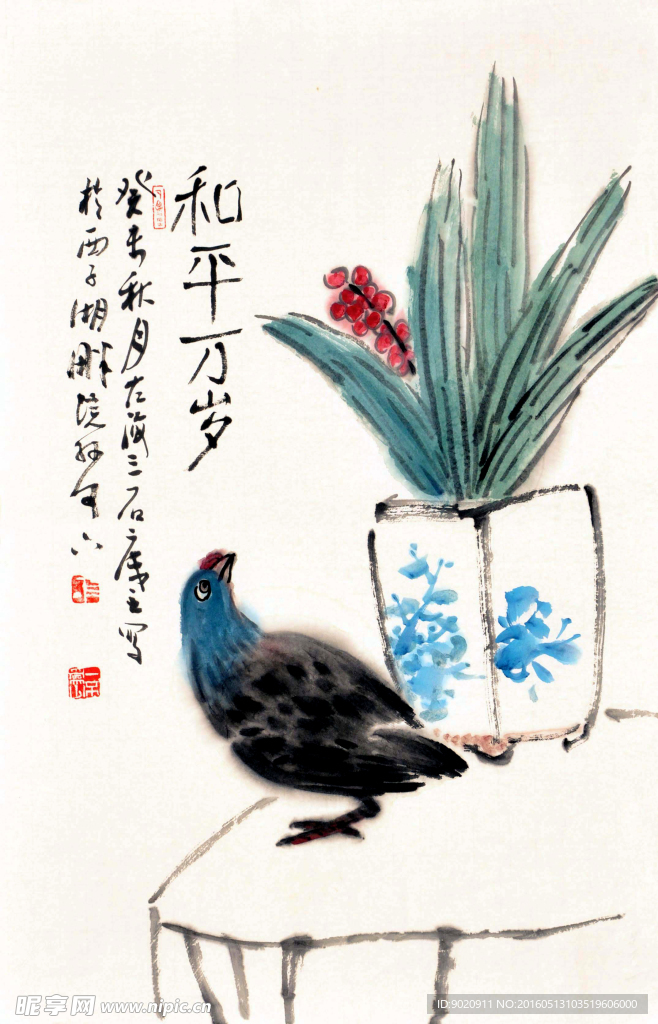 和平万岁
癸未秋月左海三石庐主写
于西子湖畔
昵享网 www.nipic.cn
ID:9020911 NO:20160513103519606000